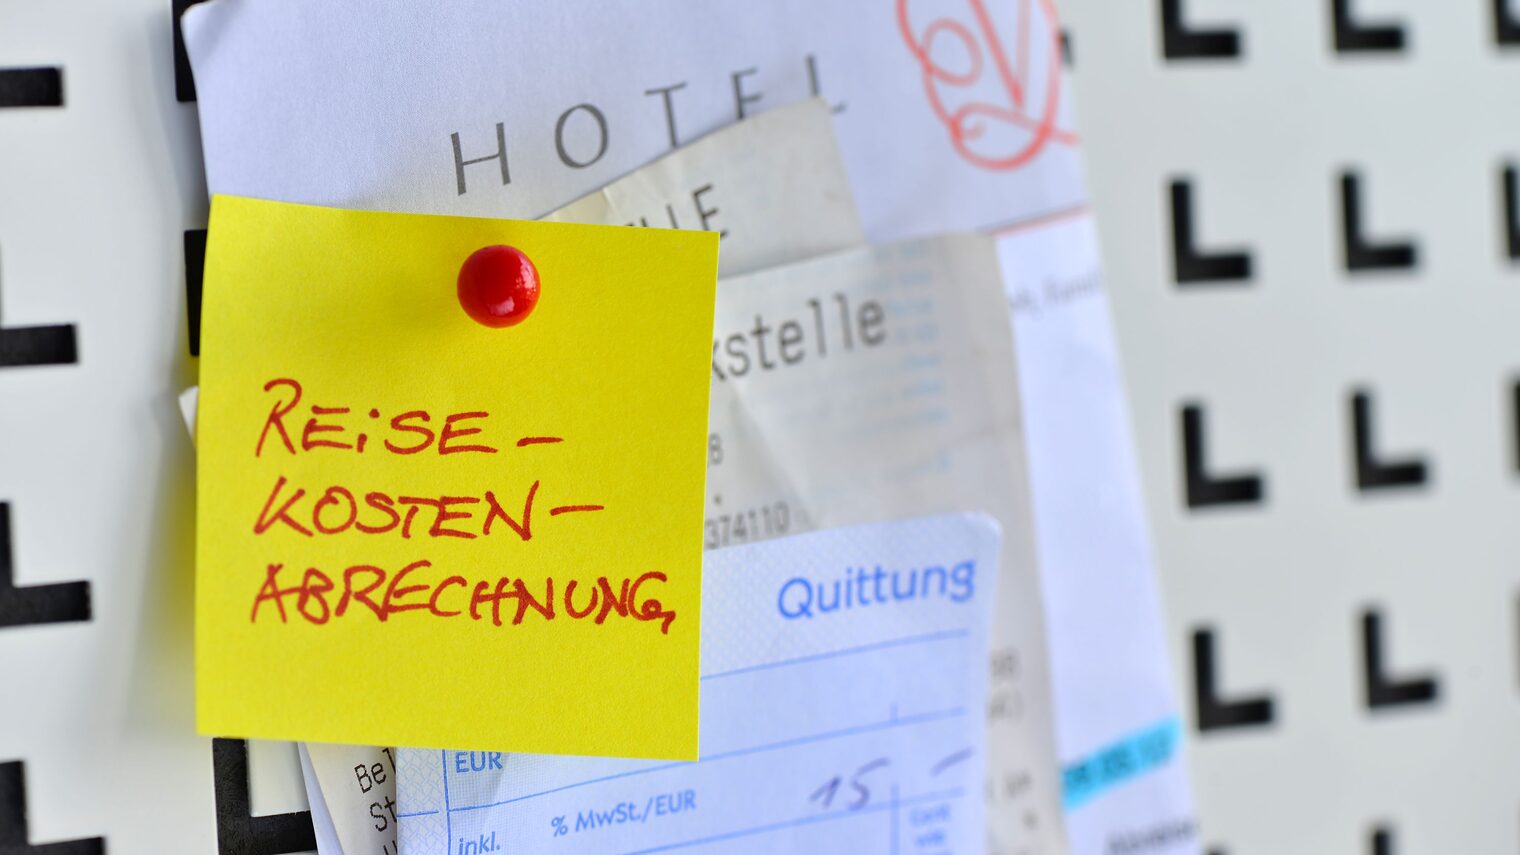 HOTEL
LLE
kstelle
REiSE-
KOSTEN-
ABRECHNUNG
8
374110
Quittung
EUR
15 -
% MwSt./EUR
inkl.
Bel
St